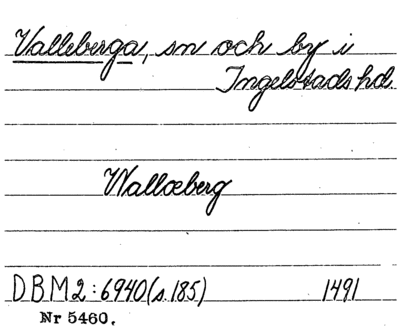 Valleberga, sn och by i
Ingelstads hd.
Wallæberg
DBM2:6940(s.185) 1491
Nr 5460.